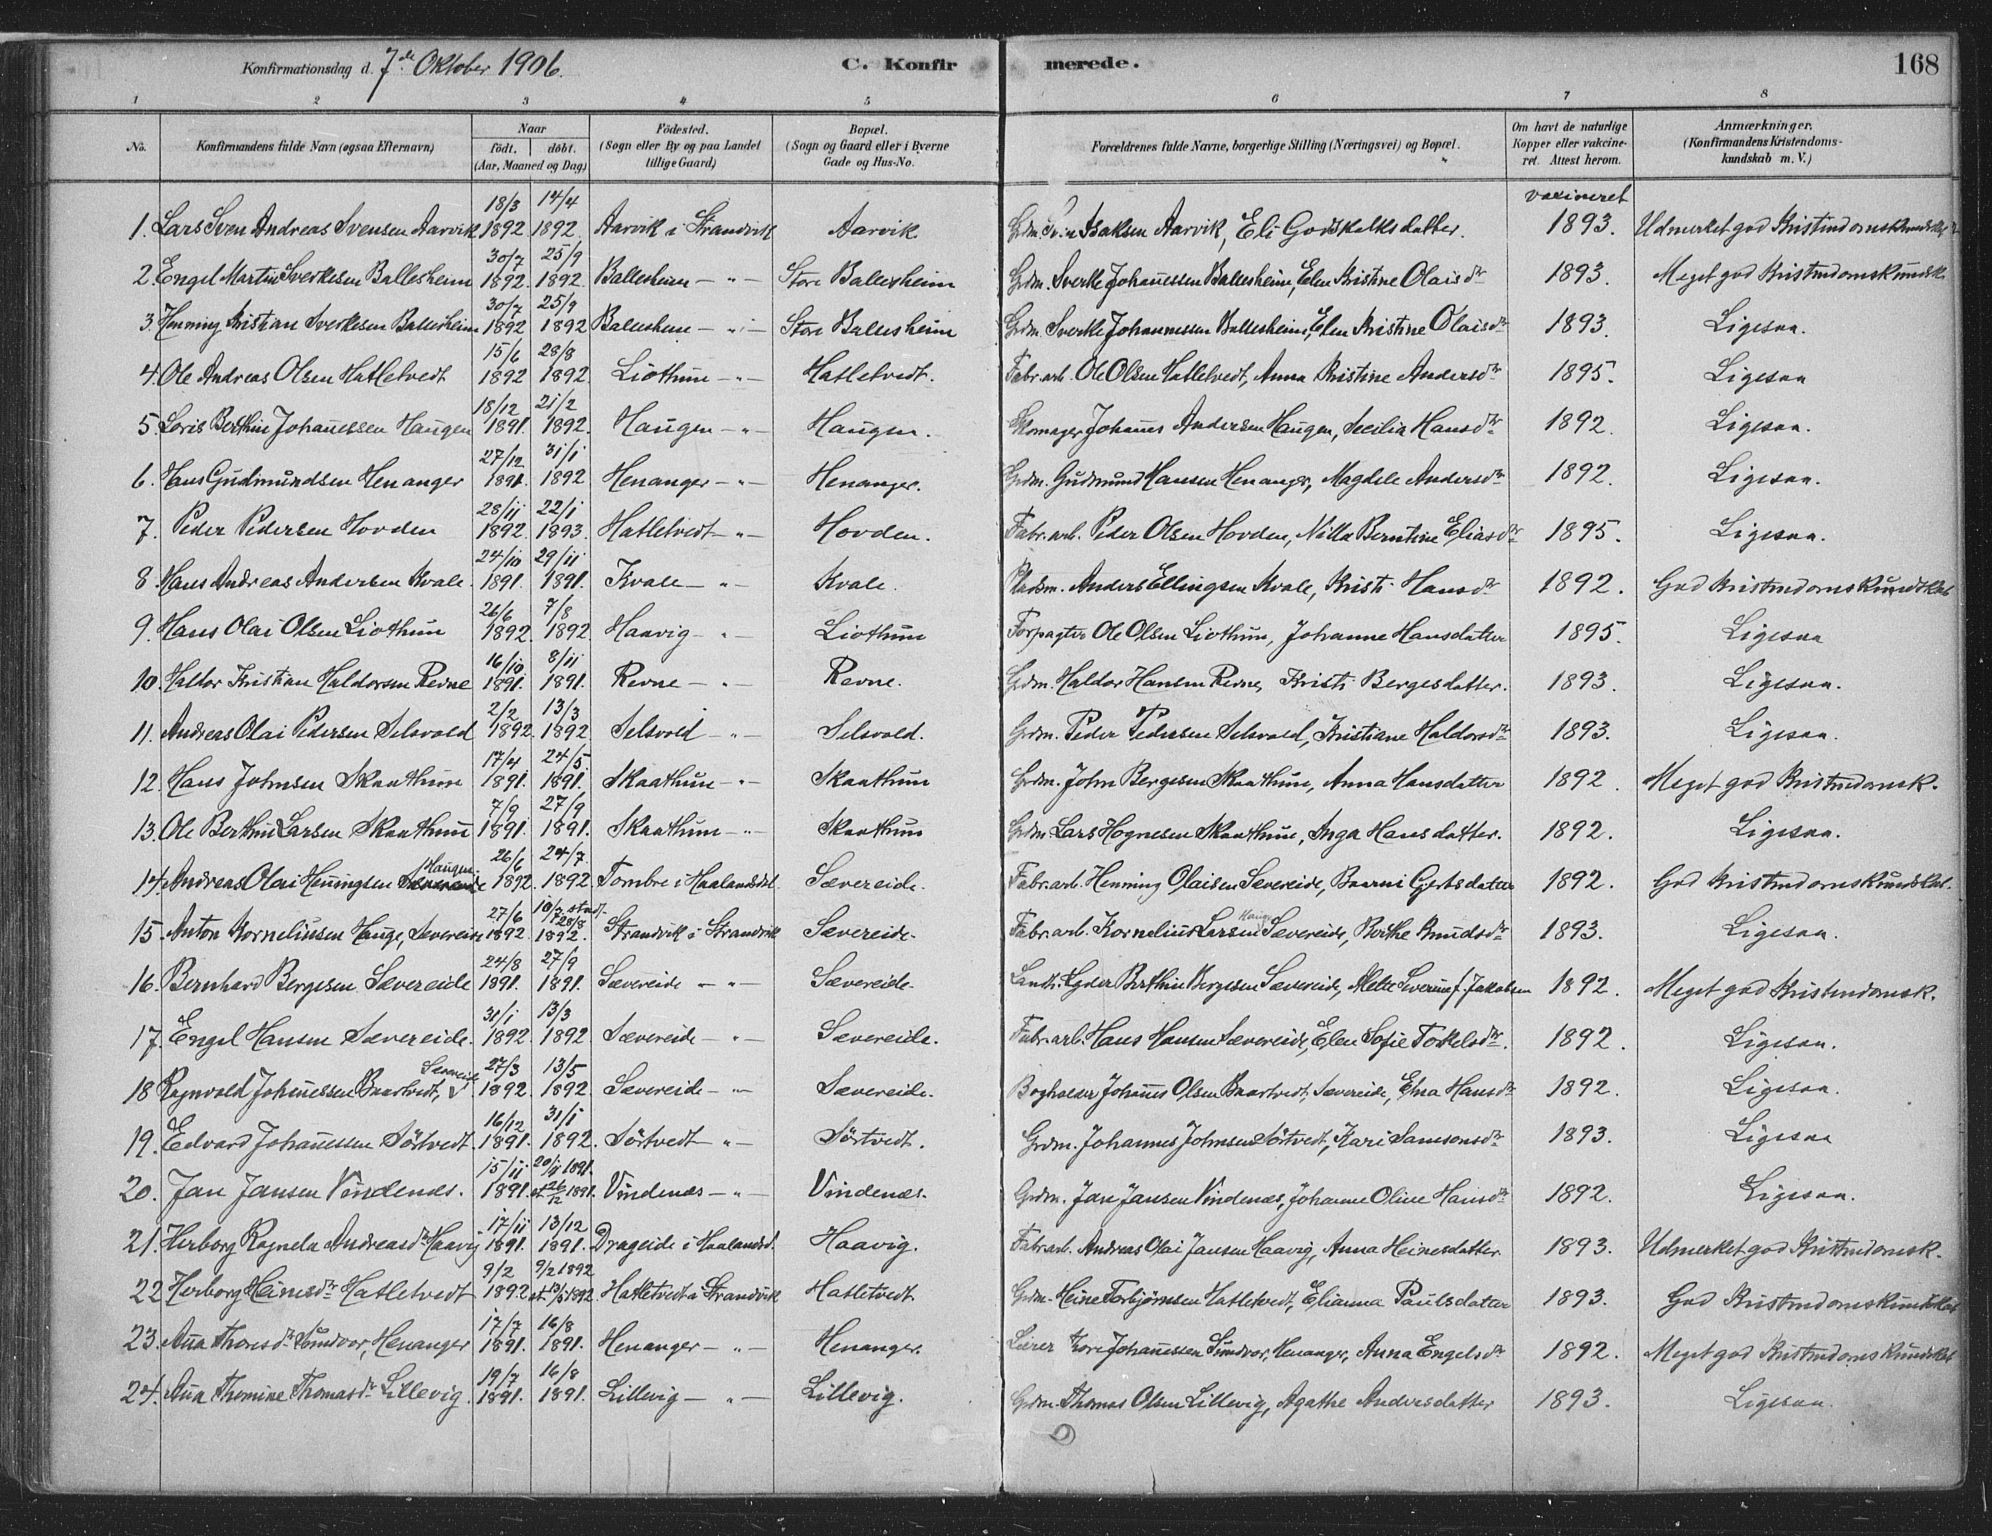 Konfirmationsdag d. 7de Oktober 1906. C. Konfirmerede. 168
1 2 3 4 5 6 7 8
No. Konfirmandens fulde Navn (ogsaa Efternavn) Naar födt. döbt. (Aar, Maaned og Dag) Födested. (Sogn eller By og paa Landet tillige Gaard) Bopæl. (Sogn og Gaard eller i Byerne Gade og Hus-No. Forældrenes fulde Navne, borgerlige Stilling (Næringsvei) og Bopæl. Om havt de naturlige Kopper eller vakcineret. Attest herom. Anmærkninger. (Konfirmandens Kristendomskundskab m. V.)
vaxineret
1. Lars Sven Andreas Svensen Aarvik 18/3 1892 14/4 1892. Aarvik i Strandvik Aarvik Grdm. Isaksen Aarvik, Eli Godskalksdatter. 1893. Udmerket god Kristendomskundsk
2. Engel Martin Sverkesen Ballesheim 30/7 1892 25/9 1892 Ballesheim — " — Store Ballesheim Grdm. Sverke Johannessen Ballesheim, Elen Kristine Olaisdr 1893. Meget god Kristendomskundsk.
3. Henning Kristian Sverkesen Ballesheim 30/7 1892 25/9 1892 Ballesheim — " — Store Ballesheim Grdm. Sverke Johannessen Ballesheim, Elen Kristine Olaisdr 1893. Ligesaa.
4. Ole Andreas Olsen Hatletvedt 15/6 1892 28/8 1892. Liothun — " — Hatletvedt. Fabr. arb. Ole Olsen Hatletvedt, Anna Kristine Andersdr 1895. Ligesaa
5. Loris Berthin Johanessen Haugen 18/12 1891. 21/2 1892. Haugen — " — Haugen. Skomager Johanes Andersen Haugen, Secilia Hansdr 1892. Ligesaa.
6. Hans Gudmundsen Henanger 27/12 1891. 31/1 1892 Henanger — " — Henanger. Grdm. Gudmund Hansen Henanger, Magdele Andersdr 1892. Ligesaa.
7. Peder Pedersen Hovden 28/11 1892. 22/1 1893. Hatletvedt — " — Hovden. Fabr. arb. Peder Olsen Hovden, Nilla Berntine Eliasdr 1895. Ligesaa.
8. Hans Andreas Andersen Kvale. 24/10 1891. 29/11 1891. Kvale — " — Kvale. Pladsm. Anders Ellingsen Kvale, Kristi Hansdr 1892. God Kristendomskundskab
9. Hans Olai Olsen Liothun 26/6 1892. 7/8 1892. Haavig — " — Liothun Forpagter Ole Olsen Liothun, Johanne Hansdatter 1895. Ligesaa
10. Haldor Kristian Haldorsen Revne 16/10 1891. 8/11 1891. Revne — " — Revne. Grdm. Haldor Hansen Revne, Kristi Bergesdatter. 1893. Ligesaa.
11. Andreas Olai Pedersen Selsvold 2/2 1892. 13/3 1892. Selsvold — " — Selsvold. Grdm. Peder Pedersen Selsvold, Kristiane Haldorsdr 1893. Ligesaa.
12. Hans Johnsen Skaathun 17/4 1891. 24/5. 1891. Skaathun — " — Skaathun Grdm. John Bergesen Skaathun, Anna Hansdatter 1892. Meget god Kristendomsk.
13. Ole Berthin Larsen Skaathun 7/9 1891. 27/9 1891. Skaathun — " — Skaathun Grdm. Lars Hognesen Skaathun, Inga Hansdatter. 1892. Ligesaa.
14. Andreas Olai Henningsen Haugen 26/6 1892. 24/7 1892. Tombre i Haalandsdal Sævereide. Fabr. arb. Henning Olaisen Sævereide, Baarni Gjertsdatter 1892. God Kristendomskundskab.
15. Anton Kornelinsen Hauge, Sævereide 27/6 1892. 10/7 stadf. 28/8 1892. Strandvik i Strandvik Sævereide. Fabr. arb. Kornelius Larsen Hauge Sævereide, Berthe Knudsdr 1893. Ligesaa.
16. Bernhard Bergesen Sævereide 24/8 1891. 27/9 1891. Sævereide — " — Sævereide. Berthin Bergesen Sævereide, Melte Severine f. Jakobsen 1892. Meget god Kristendomsk.
17. Engel Hansen Sævereide. 31/1 1892 13/3 1892 Sævereide — " — Sævereide. Fabr. arb. Hans Hansen Sævereide, Elen Sofie Torkelsdr. 1892. Ligesaa.
18 Ragnvald Johanessen Baartvedt, Sævereide 27/3 1892 13/5 1892. Sævereide — " — Sævereide. Bogholder Johanes Olsen Baartvedt, Sævereide, Edna Hansdr 1892. Ligesaa.
19. Edvard Johanessen Sörtvedt 16/12 1891. 31/1 1892. Sörtvedt — " — Sörtvedt. Grdm. Johannes Johnsen Sörtvedt, Kari Samsonsdr 1893. Ligesaa
20. Jan Jansen Vindenæs. 15/11 1891. 20/11 1891. st. 26/12 1891. Vindenæs — " — Vindenæs. Grdm. Jan Jansen Vindenæs, Johanne Oline Hansdr 1892. Ligesaa.
21. Herborg Ragnela Andreasdr Haavig 17/11 1891. 13/12 1891. Drageide i Haalandsd. Haavig. Fabr. arb. Andreas Olai Jansen Haavig, Anna Heinesdatter. 1893. Udmerket god Kristendomsk.
22 Herborg Heinesdr Hatletvedt 9/2 1892 9/2 1892 st. 13/5 1892. Hatletvedt i Strandvik Hatletvedt Grdm. Heine Torbjörnsen Hatletvedt, Elianna Paulsdatter 1893. God Kristendomskundskab
23. Ana Thoresdr Sundvor, Henanger 17/7 1891. 16/8 1891. Henanger — " — Henanger. Lærer Tore Johanessen Sundvor, Henanger, Anna Engelsdr 1892. Meget god Kristendomskundskab
24. Ana Thomine Thomasdr Lillevig 19/7 1891. 16/8 1891. Lillevig — " — Lillevig. Grdm. Thomas Olsen Lillevig, Agathe Andersdatter 1893. Ligesaa.